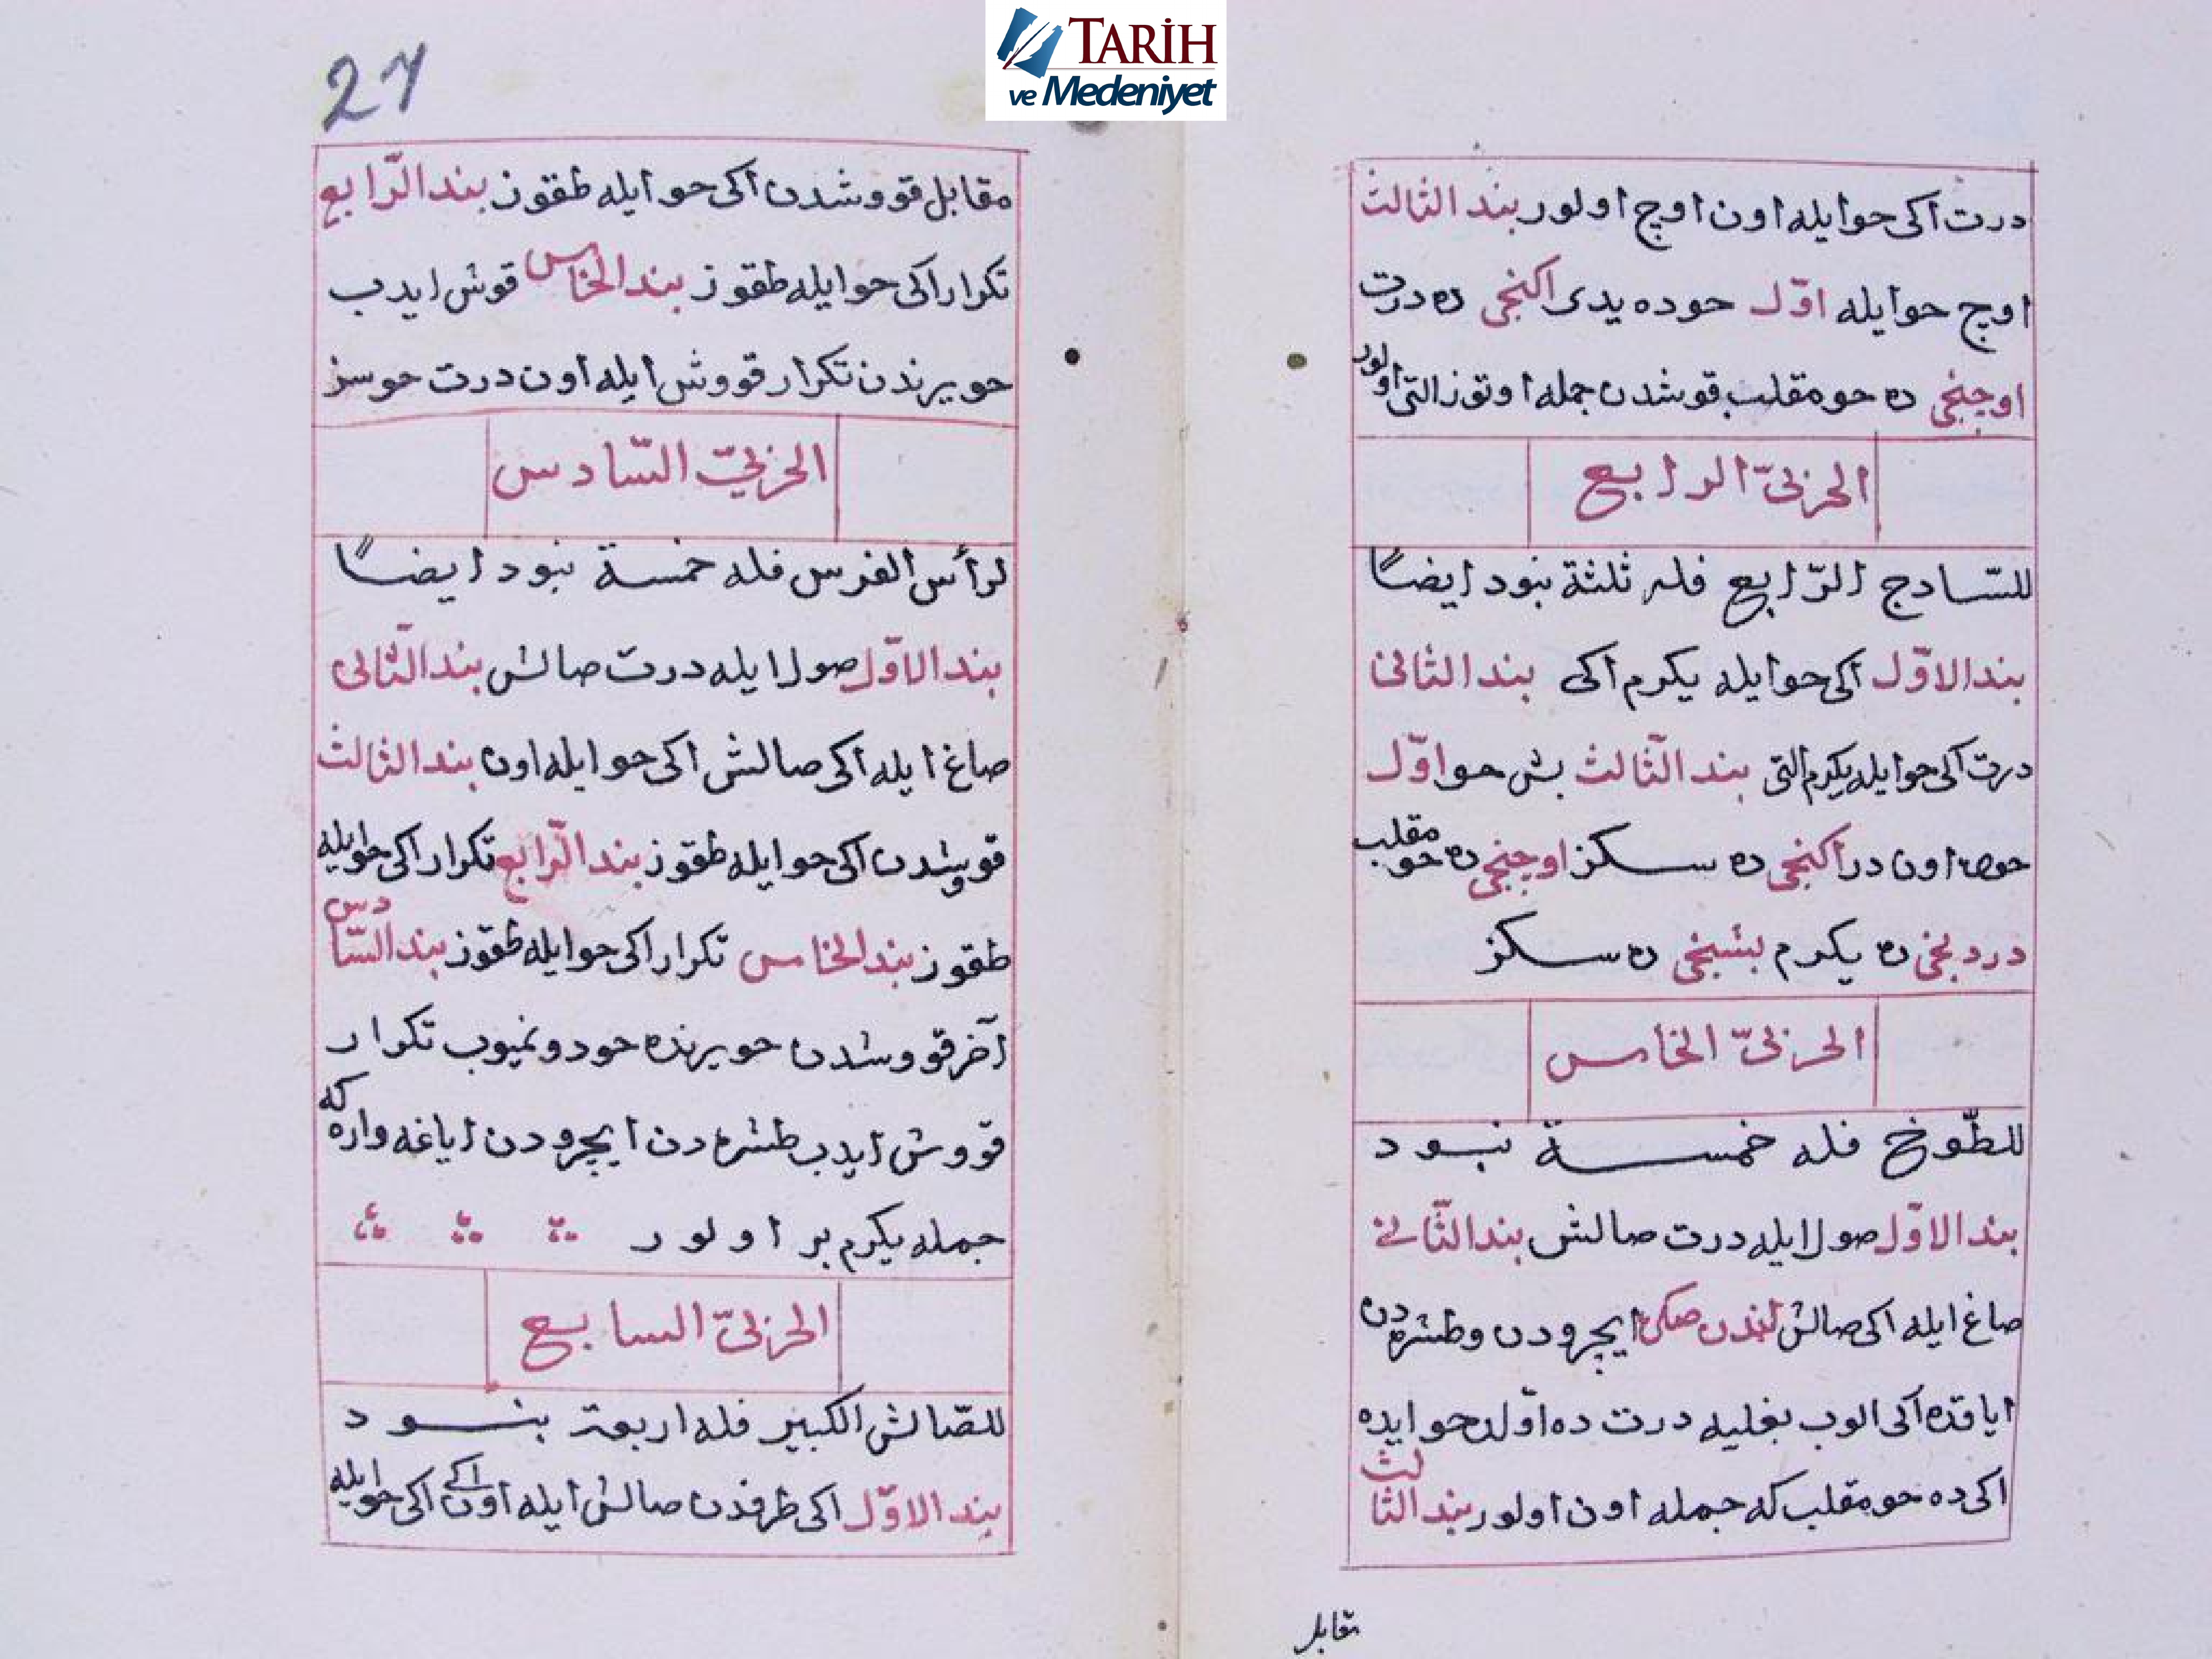 TARİH
ve Medeniyet
درت اكى حو ايله اون اوچ اولور بند الثالث
اوچ حو ايله اوّل حوده يدى اكنجى ده درت
اوچنجى ده حو مقلب قوشدن جمله اوتوز التى اولور
الحزبىّ الرابع
للسّادج الرّابع فله ثلثة بنود ايضاً
بند الاوّل اكى حو ايله يكرم اكى بند الثانى
درت اكى حو ايله يكرم التى بند الثّالث بش حو اوّل
حوده اون در اكنجى ده سكز اوچنجى ده حو مقلب
دردنجى ده يكرم بشنجى ده سكز
الحزبىّ الخامس
للطّوخ فله خمسة بنود
بند الاوّل صول ايله درت صالش بند الثّانى
صاغ ايله اكى صالش ايچرودن وطشره دن
اياقده اكى الوب بغليه درت ده اوّل حو ايده
اكى ده حو مقلب كه جمله اون اولور بند الثالث
مقابل
27
مقابل قووشدن اكى حو ايله طقوز بند الرّابع
تكرار اكى حو ايله طقوز بند الخامس قوش ايدب
حو يرندن تكرار قووش ايله اون درت حوسز
الحزبىّ السّادس
لرأس الفرس فله خمسة بنود ايضاً
بند الاوّل صول ايله درت صالش بند الثّانى
صاغ ايله اكى صالش اكى حو ايله اون بند الثالث
قووشدن اكى حو ايله طقوز بند الرّابع تكرار اكى حو ايله
طقوز بند الخامس تكرار اكى حو ايله طقوز بند السّادس
آخر قووشدن حو يرنده حو دونميوب تكرار
قووش ايدب طشره دن ايچرودن اياغه واره كه
جمله يكرم بر اولور
الحزبىّ السابع
للصّالش الكبير فله اربعة بنود
بند الاوّل اكى طرفدن صالش ايله اون اكى اكى حو ايله